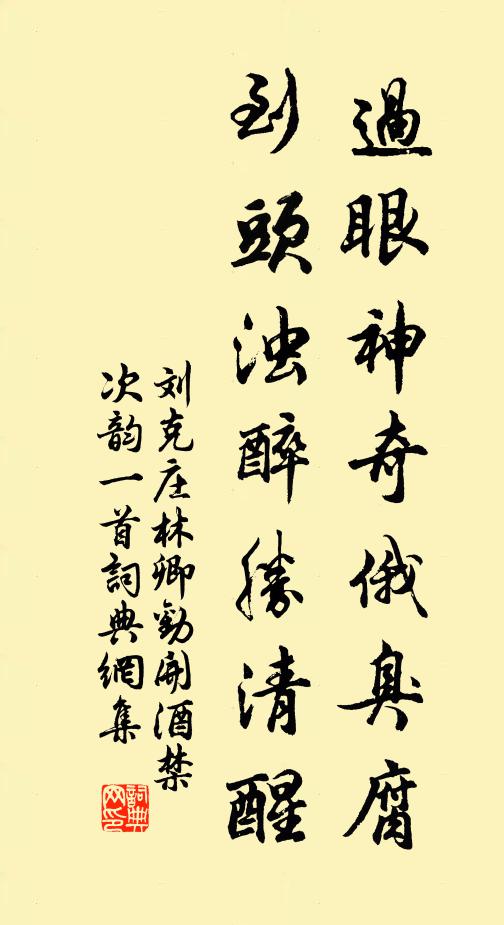 過眼神奇俄臭腐
到頭浊醉勝清醒
刘克庄林卿勸開酒禁
次韵一首詞典網集
詞典
网印